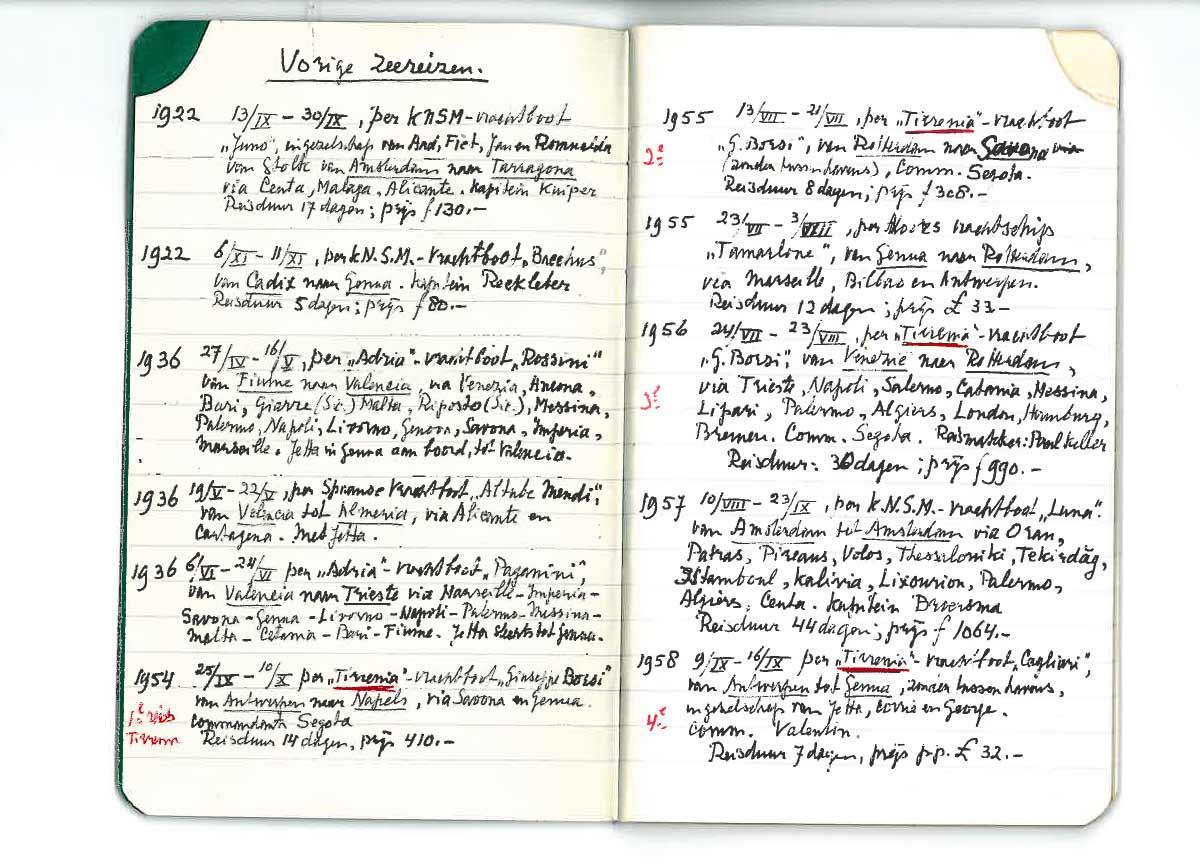 Vorige zeereizen.
1922 13/IX – 30/IX, per KNSM-vrachtboot
"Juno", in gezelschap van And, Fiet, Jan en Romanita
van Stolk van Amsterdam naar Tarragona
via Ceuta, Malaga, Alicante. Kapitein Kuiper
Reisduur 17 dagen; prijs f 130.-
1922 6/XI – 11/XI, per K.N.S.M.-vrachtboot "Bacchus",
van Cadix naar Genua. Kapitein Reekleter
Reisduur 5 dagen; prijs f 80.-
1936 27/IV – 16/V, per "Adria"-vrachtboot "Rossini"
van Fiume naar Valencia, via Venezia, Ancona,
Bari, Giarre (Sic.) Malta, Riposto (Sic.), Messina,
Palermo, Napoli, Livorno, Genova, Savona, Imperia,
Marseille. Jetta in Genua aan boord, tot Valencia.
1936 19/V – 22/V, per Spaanse vrachtboot "Altube Mendi",
van Valencia tot Almeria, via Alicante en
Cartagena. Met Jetta.
1936 6/VI – 24/VI per "Adria"-vrachtboot "Paganini",
van Valencia naar Trieste via Marseille – Imperia –
Savona – Genua – Livorno – Napoli – Palermo – Messina –
Malta – Catania – Bari – Fiume. Jetta slechts tot Genua.
1954 25/IX – 10/X per "Tirrenia"-vrachtboot "Giuseppe Borsi"
van Antwerpen naar Napels, via Savona en Genua.
Commandante Segota
Reisduur 14 dagen, prijs 410.-
1e reis
Tirrenia
1955 13/VII – 21/VII, per "Tirrenia"-vrachtboot
2e "G. Borsi", van Rotterdam naar Savona via
(zonder tussenhavens), Comm. Segota.
Reisduur 8 dagen; prijs f 308.-
1955 23/VII – 3/VIII, per Noors vrachtschip
"Tamarlane", van Genua naar Rotterdam,
via Marseille, Bilbao en Antwerpen.
Reisduur 12 dagen; prijs £ 33.-
1956 24/VII – 23/VIII, per "Tirrenia"-vrachtboot
"G. Borsi", van Venezie naar Rotterdam,
3e via Trieste, Napoli, Salerno, Catania, Messina,
Lipari, Palermo, Algiers, London, Hamburg,
Bremen. Comm. Segota. Reismakker: Paul Keller
Reisduur: 30 dagen; prijs f 990.-
1957 10/VIII – 23/IX, per K.N.S.M.-vrachtboot "Luna".
van Amsterdam tot Amsterdam via Oran,
Patras, Pireaus, Volos, Thessaloniki, Tekirdağ,
Istamboul, Kalivia, Lixourion, Palermo,
Algiers, Ceuta. Kapitein Broersma
Reisduur 44 dagen; prijs f 1064.-
1958 9/IX – 16/IX per "Tirrenia"-vrachtboot "Cagliari",
van Antwerpen tot Genua, zonder tussenhavens,
in gezelschap van Jetta, Corrie en George.
4e Comm. Valentin.
Reisduur 7 dagen, prijs p.p. £ 32.-